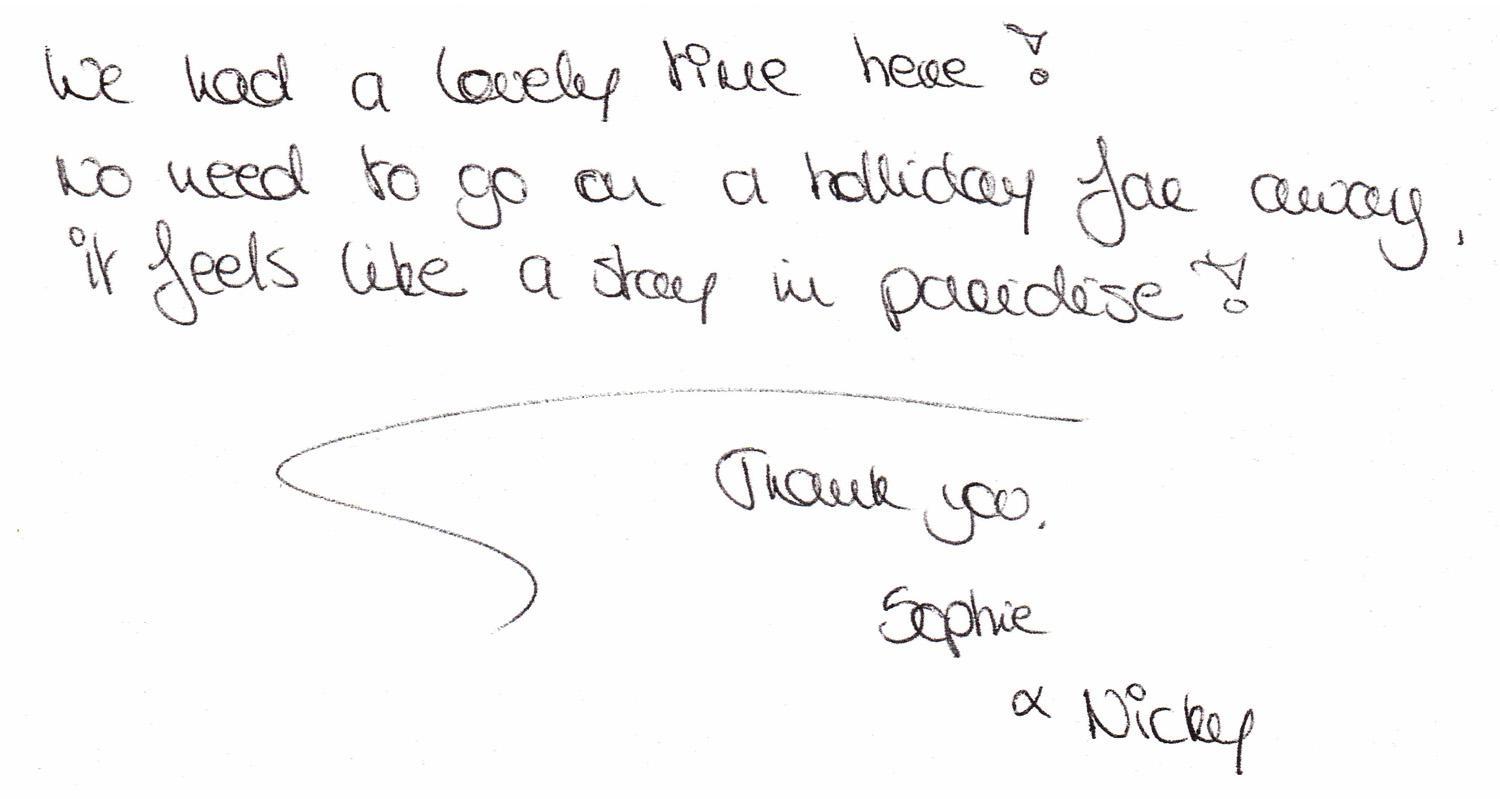 We had a lovely time here!
No need to go on a holliday far away,
it feels like a stay in paridise!
Thank you,
Sophie
& Nickey